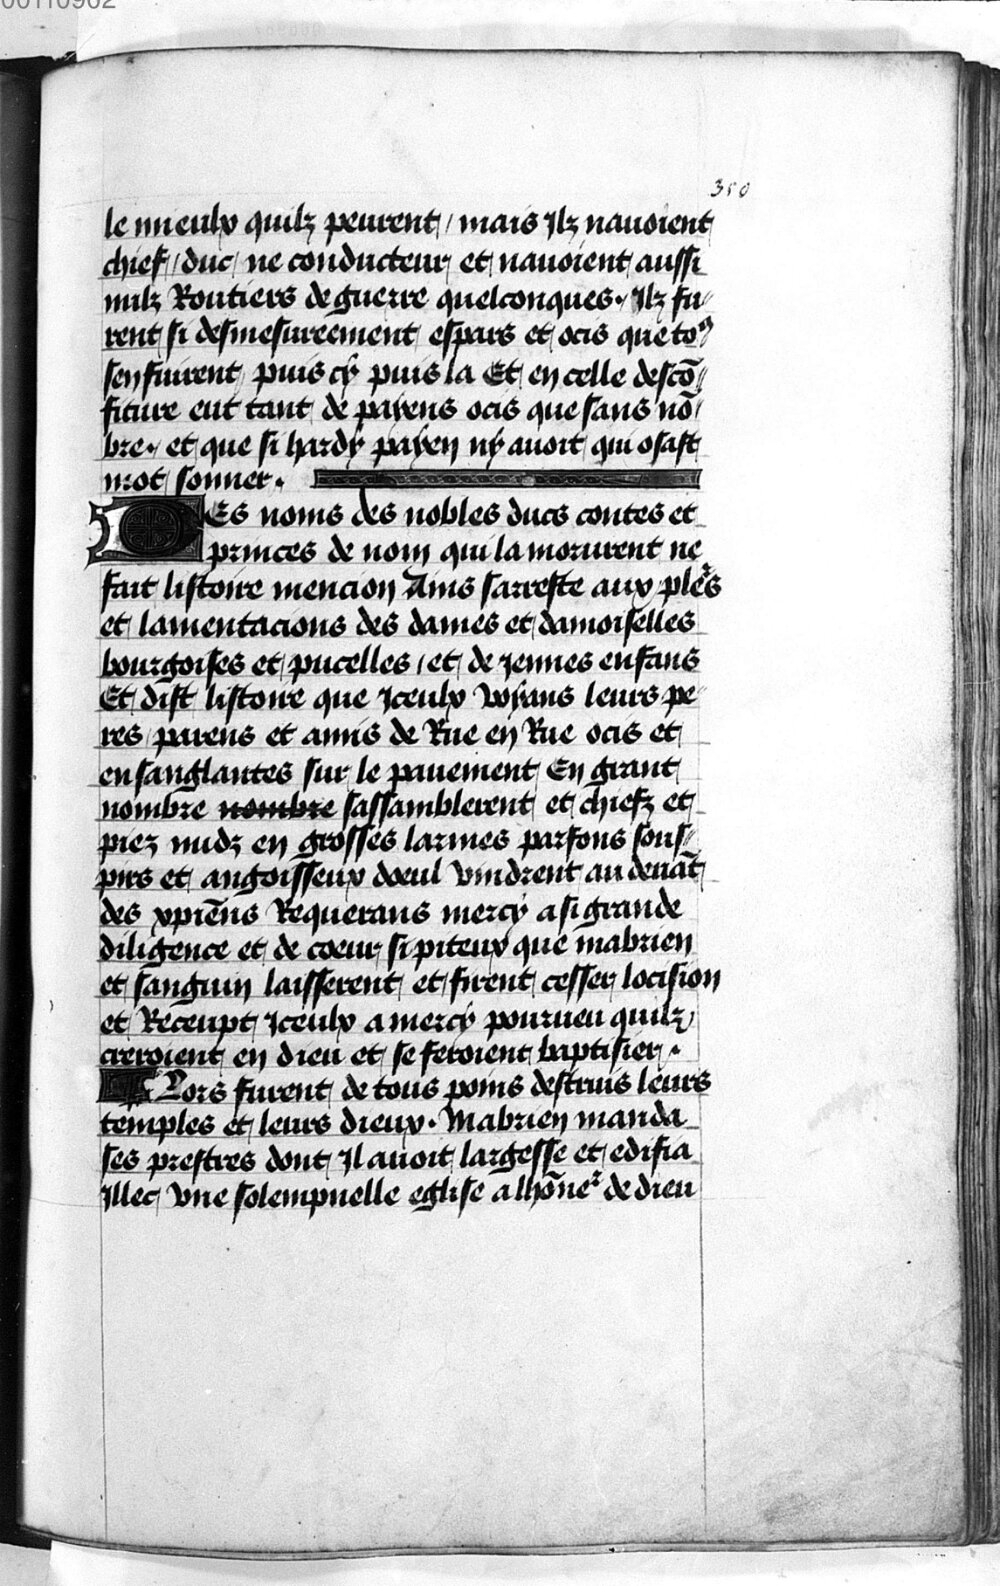 00110902
350
le mieulx quilz peurent / mais Ilz nauoient
chief / duc / ne conducteur et nauoient aussi
nulz Routiers de guerre quelconques . Ilz fu
rent si desmesureement espars et ocis que to⁹
sen fuirent puis cy puis la Et en celle descō
fiture eut tant de payens ocis que sans nō
bre . et que si hardy payen ny auoit qui osast
mot sonner .
DEs noms des nobles ducs contes et
princes de nom qui la morurent ne
fait listoire mencion Ains sarreste aux plers
et lamentacions des dames et damoiselles
bourgoises et pucelles / et de jennes enfans
Et dist listoire que Iceulx voyans leurs pe
res parens et amis de Rue en Rue ocis et
ensanglantes sur le pauement En grant
nombre nombre sassamblerent et chiefz et
piez nudz en grosses larmes parfons sous
pirs et angoisseux doeul vindrent au deuāt
des xpiēns Requerans mercy a si grande
diligence et de coeur si piteux que mabrien
et sanguin laisserent et firent cesser locision
et Receupt Iceulx a mercy pourueu quilz
creroient en dieu et se feroient baptisier .
Lors furent de tous poins destruis leurs
temples et leurs dieux . Mabrien manda
ses prestres dont Il auoit largesse et edifia
Illec vne solempnelle eglise a lhōneʳ de dieu